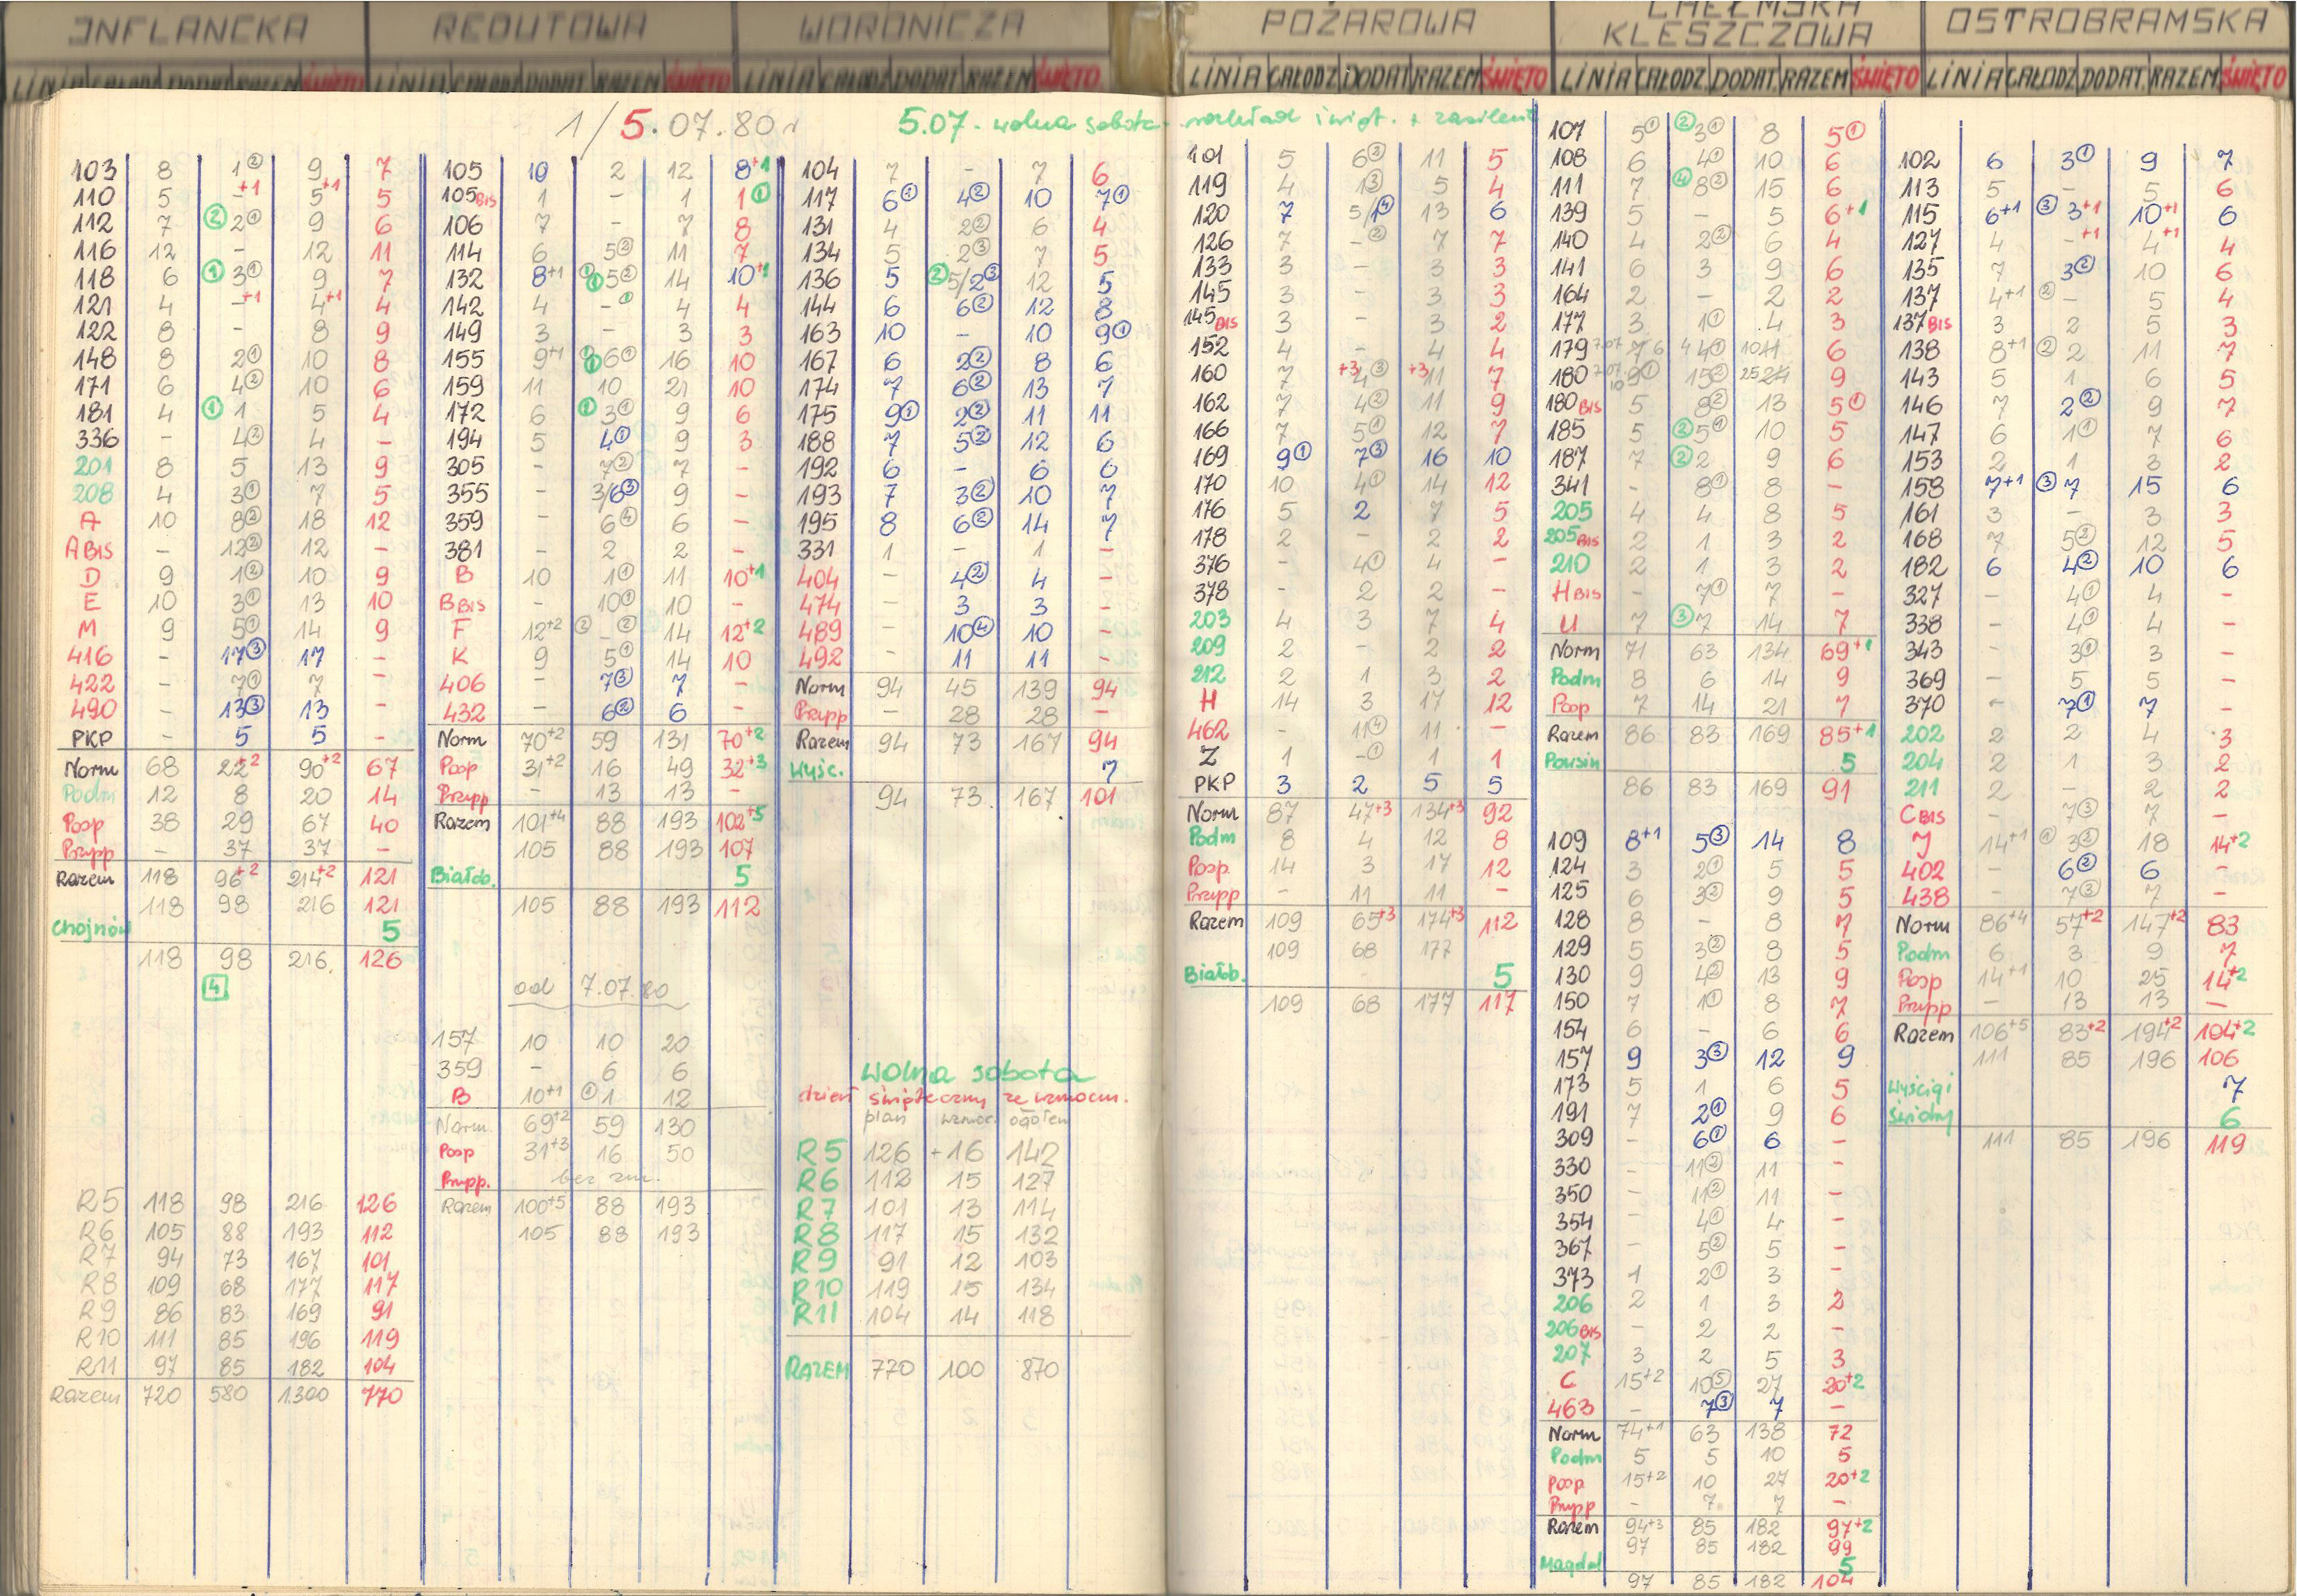 INFLANCKA
LINIA CAŁODZ DODAT. RAZEM ŚWIĘTO
1/5.07.80 r
103 8 1② 9 7
110 5 -+1 5+1 5
112 7 ②2① 9 6
116 12 - 12 11
118 6 ①3① 9 7
121 4 -+1 4+1 4
122 8 - 8 9
148 8 2① 10 8
171 6 4② 10 6
181 4 ①1 5 4
336 - 4② 4 -
201 8 5 13 9
208 4 3① 7 5
A 10 8② 18 12
A BIS - 12② 12 -
D 9 1② 10 9
E 10 3① 13 10
M 9 5① 14 9
416 - 17③ 17 -
422 - 7① 7 -
490 - 13③ 13 -
PKP - 5 5 -
Norm 68 22+2 90+2 67
Podm 12 8 20 14
Posp 38 29 67 40
Przysp - 37 37 -
Razem 118 96+2 214+2 121
118 98 216 121
Chojnów 5
118 98 216. 126
4
R5 118 98 216 126
R6 105 88 193 112
R7 94 73 167 101
R8 109 68 177 117
R9 86 83 169 91
R10 111 85 196 119
R11 97 85 182 104
Razem 720 580 1300 770
REDUTOWA
LINIA CAŁODZ DODAT. RAZEM ŚWIĘTO
105 10 2 12 8+1
105 BIS 1 - 1 1①
106 7 - 7 8
114 6 5② 11 7
132 8+1 ①①5② 14 10+1
142 4 -① 4 4
149 3 - 3 3
155 9+1 ①①6① 16 10
159 11 10 21 10
172 6 ①3① 9 6
194 5 4① 9 3
305 - 7② 7 -
355 - 3/6③ 9 -
359 - 6④ 6 -
381 - 2 2 -
B 10 1① 11 10+1
B BIS - 10① 10 -
F 12+2 ②-② 14 12+2
K 9 5① 14 10
406 - 7③ 7 -
432 - 6② 6 -
Norm 70+2 59 131 70+2
Posp 31+2 16 49 32+3
Przysp - 13 13 -
Razem 101+4 88 193 102+5
105 88 193 107
Białob. 5
105 88 193 112
od 7.07.80
157 10 10 20
359 - 6 6
B 10+1 ①1 12
Norm. 69+2 59 130
Posp 31+3 16 50
Przysp. bez zm.
Razem 100+5 88 193
105 88 193
WORONICZA
LINIA CAŁODZ DODAT. RAZEM ŚWIĘTO
5.07. wolna sobota - rozkład święt. + zasileni
104 7 - 7 6
117 6① 4② 10 7①
131 4 2② 6 4
134 5 2③ 7 5
136 5 ②5/2③ 12 5
144 6 6② 12 8
163 10 - 10 9①
167 6 2② 8 6
174 7 6② 13 7
175 9① 2② 11 11
188 7 5② 12 6
192 6 - 6 6
193 7 3② 10 7
195 8 6② 14 7
331 1 - 1 -
404 - 4② 4 -
474 - 3 3 -
489 - 10④ 10 -
492 - 11 11 -
Norm 94 45 139 94
Przysp - 28 28 -
Razem 94 73 167 94
Wyśc. 7
94 73. 167 101
wolna sobota
dzień świąteczny ze wzmocn.
plan wzmoc. ogółem
R5 126 +16 142
R6 112 15 127
R7 101 13 114
R8 117 15 132
R9 91 12 103
R10 119 15 134
R11 104 14 118
RAZEM 770 100 870
POŻAROWA
LINIA CAŁODZ DODAT. RAZEM ŚWIĘTO
101 5 6② 11 5
119 4 1③ 5 4
120 7 5/1④ 13 6
126 7 -② 7 7
133 3 - 3 3
145 3 - 3 3
145 BIS 3 - 3 2
152 4 - 4 4
160 7 +3 4③ +3 11 7
162 7 4② 11 9
166 7 5① 12 7
169 9① 7③ 16 10
170 10 4① 14 12
176 5 2 7 5
178 2 - 2 2
376 - 4① 4 -
378 - 2 2 -
203 4 3 7 4
209 2 - 2 2
212 2 1 3 2
H 14 3 17 12
462 - 11④ 11 -
Z 1 -① 1 1
PKP 3 2 5 5
Norm 87 47+3 134+3 92
Podm 8 4 12 8
Posp. 14 3 17 12
Przysp - 11 11 -
Razem 109 65+3 174+3 112
109 68 177
Białob. 5
109 68 177 117
CHEŁMSKA
KLESZCZOWA
LINIA CAŁODZ. DODAT. RAZEM ŚWIĘTO
107 5① ②3① 8 5①
108 6 4① 10 6
111 7 ④8② 15 6
139 5 - 5 6+1
140 4 2② 6 4
141 6 3 9 6
164 2 - 2 2
177 3 1① 4 3
179 7.07 7 6 4 4① 10 11 6
180 7.07 10 9① 15② 25 24 9
180 BIS 5 8② 13 5①
185 5 ②5① 10 5
187 7 ②2 9 6
341 - 8① 8 -
205 4 4 8 5
205 BIS 2 1 3 2
210 2 1 3 2
H BIS - 7① 7 -
U 7 ③7 14 7
Norm 71 63 134 69+1
Podm 8 6 14 9
Posp 7 14 21 7
Razem 86 83 169 85+1
Powsin 5
86 83 169 91
109 8+1 5③ 14 8
124 3 2① 5 5
125 6 3② 9 5
128 8 - 8 7
129 5 3② 8 5
130 9 4② 13 9
150 7 1① 8 7
154 6 - 6 6
157 9 3③ 12 9
173 5 1 6 5
191 7 2① 9 6
309 - 6① 6 -
330 - 11② 11 -
350 - 11② 11 -
354 - 4① 4 -
367 - 5② 5 -
373 1 2① 3 -
206 2 1 3 2
206 BIS - 2 2 -
207 3 2 5 3
C 15+2 10⑤ 27 20+2
463 - 7③ 7 -
Norm 74+1 63 138 72
Podm 5 5 10 5
Posp 15+2 10 27 20+2
Przysp - 7 7 -
Razem 94+3 85 182 97+2
97 85 182 99
Magdal 5
97 85 182 104
OSTROBRAMSKA
LINIA CAŁODZ. DODAT. RAZEM ŚWIĘTO
102 6 3① 9 7
113 5 - 5 6
115 6+1 ③3+1 10+1 6
127 4 -+1 4+1 4
135 7 3② 10 6
137 4+1 ②- 5 4
137 BIS 3 2 5 3
138 8+1 ②2 11 7
143 5 1 6 5
146 7 2② 9 7
147 6 1① 7 6
153 2 1 3 2
158 7+1 ③7 15 6
161 3 - 3 3
168 7 5② 12 5
182 6 4② 10 6
327 - 4① 4 -
338 - 4① 4 -
343 - 3① 3 -
369 - 5 5 -
370 - 7① 7 -
202 2 2 4 3
204 2 1 3 2
211 2 - 2 2
C BIS - 7③ 7 -
J 14+1 3② 18 14+2
402 - 6② 6 -
438 - 7③ 7 -
Norm 86+4 57+2 147+2 83
Podm 6 3 9 7
Posp 14+1 10 25 14+2
Przysp - 13 13 -
Razem 106+5 83+2 194+2 104+2
111 85 196 106
Wyścigi 7
Świdry 6
111 85 196 119